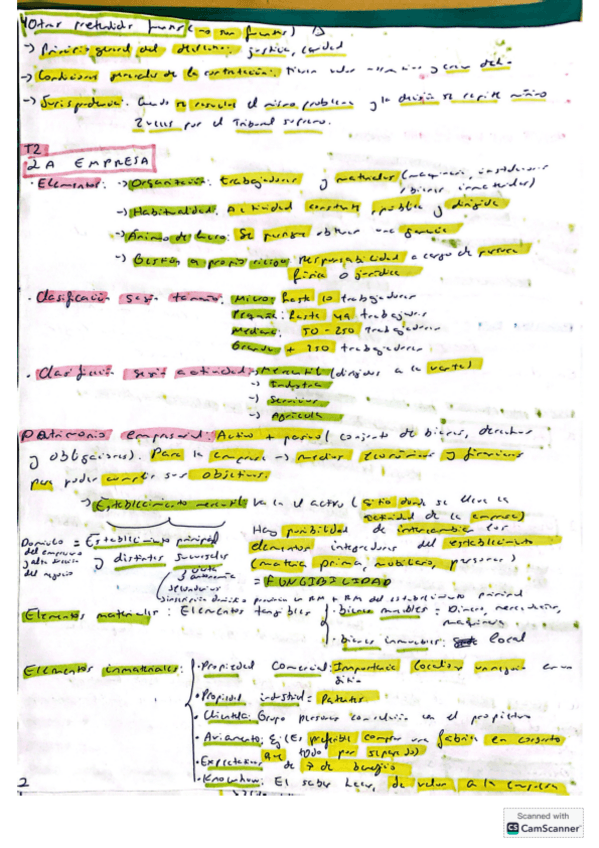 4) Otras pretendidas fuentes (no son fuentes)
-> Principio general del derecho: justicia, caridad
-> Condiciones generales de la contratación: Tienen valor y crean
-> Jurisprudencia. Cuando se resuelve el mismo problema y la decisión se repite mínimo
2 veces por el Tribunal Supremo.
T2
LA EMPRESA
· Elementos: -> Organización: trabajadores y materiales (maquinaria, instalaciones
y bienes inmateriales)
-> Habitualidad. Actividad constante, pública y dirigida
-> Ánimo de lucro: Se persigue obtener una ganancia
-> Gestión a propio riesgo: responsabilidad a cargo de persona
física o jurídica
· Clasificación según tamaño: Micro: hasta 10 trabajadores
Pequeña: hasta 49 trabajadores
Mediana: 50-250 trabajadores
Grande + 250 trabajadores
· Clasificación según actividad: -> Mercantil (dirigidas a la venta)
-> Industria
-> Servicios
-> Agrícola
Patrimonio empresarial: Activo + pasivo (conjunto de bienes, derechos
y obligaciones). Para la empresa -> medios económicos y financieros
para poder cumplir sus objetivos.
-> Establecimiento mercantil va en el activo (sitio donde se lleva la
actividad de la empresa)
Domicilio = Establecimiento principal
del empresario
y alta dirección
del negocio
y distintas sucursales
Hay posibilidad de intercambiar los
elementos integradores del establecimiento
(materia prima, mobiliario, personas)
= FUNGIBILIDAD
y autonomía
secundarios
inscripción provincia en RM + RM del establecimiento principal
Elementos materiales: Elementos tangibles
· bienes muebles = Dinero, mercadería,
maquinaria
· bienes inmuebles: local
Elementos inmateriales:
· Propiedad Comercial: Importancia localizar un negocio en un
sitio
· Propiedad industrial = Patentes
· Clientela: Grupo personas con relación con el propietario
· Aviamiento: Ej (Es preferible comprar una fábrica en conjunto
que todo por separado)
· Expectativas de > de beneficio
· Knowhow: El saber hacer, da valor a la empresa
2
Scanned with
CS CamScanner